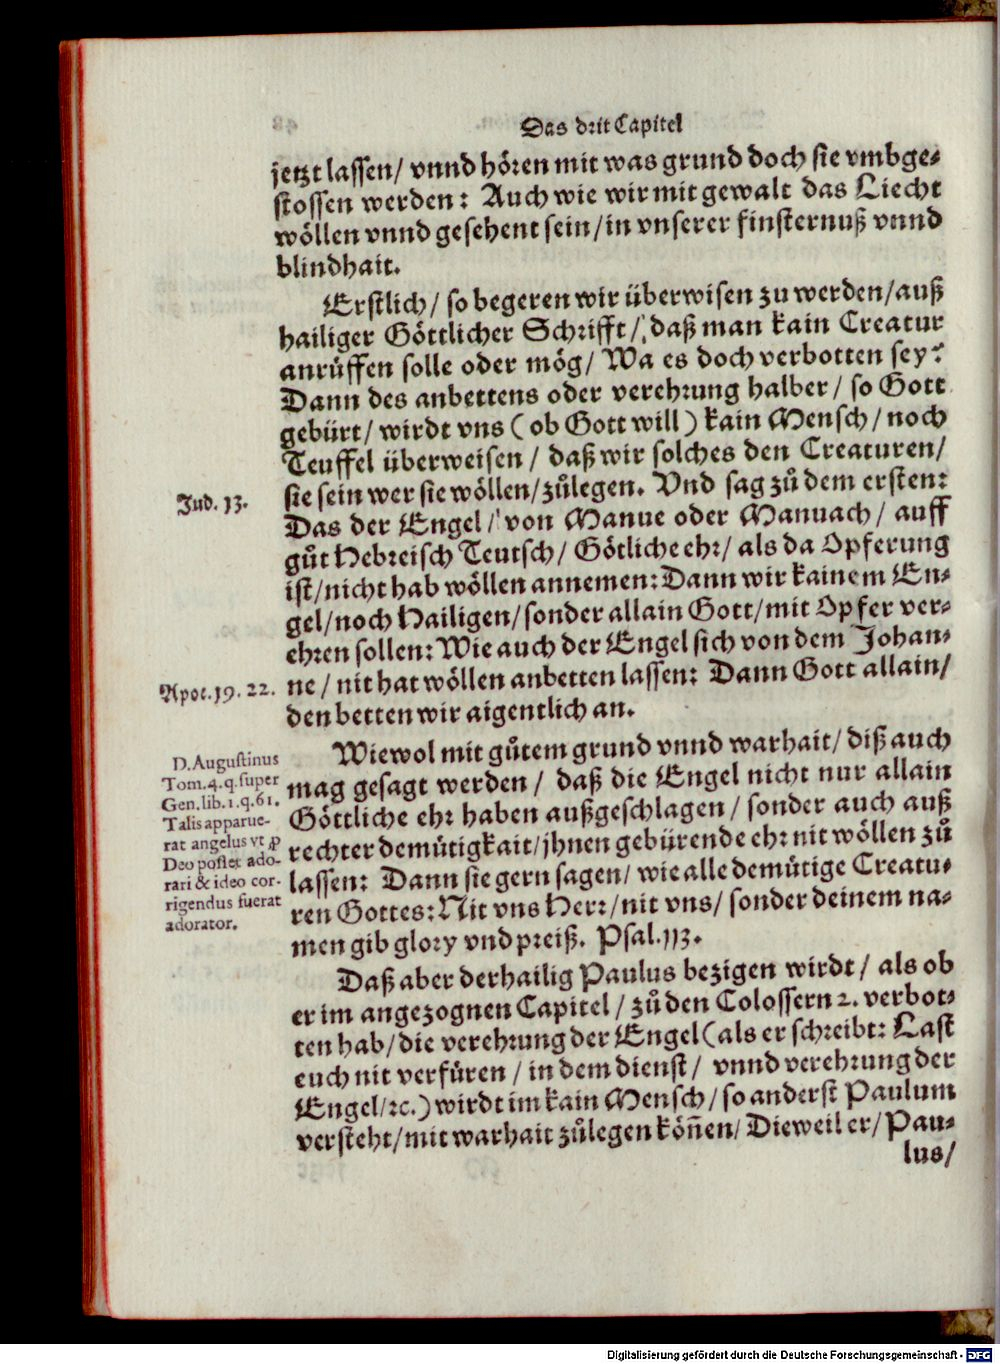 Das drit Capitel
jetzt lassen/ vnnd hören mit was grund doch sie vmbge-
stossen werden: Auch wie wir mit gewalt das Liecht
wöllen vnnd gesehent sein/in vnserer finsternuß vnnd
blindhait.
Erstlich/ so begeren wir überwisen zu werden/auß
hailiger Göttlicher Schrifft/ daß man kain Creatur
anrůffen solle oder mög/ Wa es doch verbotten sey?
Dann des anbettens oder verehrung halber/ so Gott
gebürt/ wirdt vns (ob Gott will) kain Mensch/ noch
Teuffel überweisen/ daß wir solches den Creaturen/
sie sein wer sie wöllen/zůlegen. Vnd sag zů dem ersten:
Jud. 13.
Das der Engel/ von Manue oder Manuach/ auff
gůt Hebreisch Teutsch/ Götliche ehr/ als da Opferung
ist/nicht hab wöllen annemen: Dann wir kainem En-
gel/noch Hailigen/sonder allain Gott/mit Opfer ver-
ehren sollen: Wie auch der Engel sich von dem Johan-
Apoc. 19. 22.
ne/ nit hat wöllen anbetten lassen: Dann Gott allain/
den betten wir aigentlich an.
Wiewol mit gůtem grund vnnd warhait/ diß auch
mag gesagt werden/ daß die Engel nicht nur allain
Göttliche ehr haben außgeschlagen/ sonder auch auß
rechter demůtigkait/jhnen gebürende ehr nit wöllen zů
lassen: Dann sie gern sagen/ wie alle demůtige Creatu-
ren Gottes: Nit vns Herr/nit vns/ sonder deinem na-
men gib glory vnd preiß. Psal.113.
D. Augustinus
Tom. 4. q. super
Gen. lib. 1. q. 61.
Talis apparue-
rat angelus vt ꝓ
Deo posset ado-
rari & ideo cor-
rigendus fuerat
adorator.
Daß aber der hailig Paulus bezigen wirdt/ als ob
er im angezognen Capitel/ zů den Colossern 2. verbot-
ten hab/die verehrung der Engel (als er schreibt: Last
euch nit verfüren/ in dem dienst/ vnnd verehrung der
Engel/ꝛc.) wirdt im kain Mensch/ so anderst Paulum
versteht/mit warhait zůlegen köñen/ Dieweil er/ Pau-
lus/
Digitalisierung gefördert durch die Deutsche Forschungsgemeinschaft - DFG